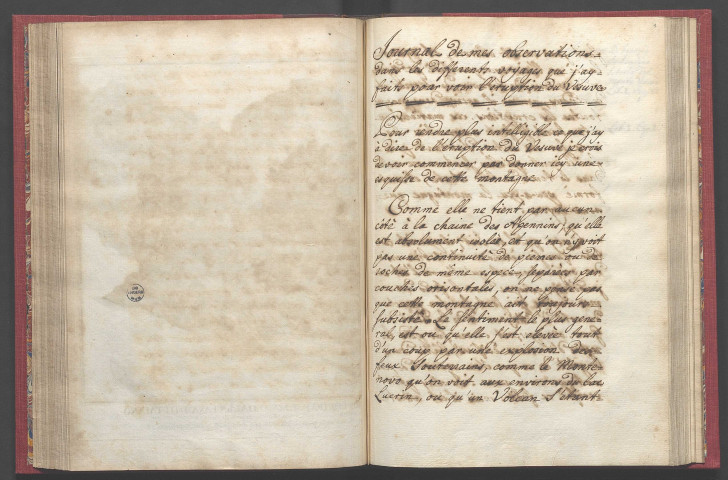 Journal de mes observations
dans les differents voyages que j'ay
faits pour voir l'eruption du Vesuve
Pour rendre plus intelligible ce que j'ay
à dire de l'eruption du Vesuve je crois
devoir commencer par donner icy une
esquisse de cette montagne
Comme elle ne tient par aucun
côté à la chaine des Apennins, qu'elle
est absolument isolée, et qu'on n'y voit
pas une continuité de pierres ou de
roches de même espece, separées par
couches orisontales, on ne pense pas
que cette montagne ait toujours
subsisté. Le sentiment le plus gene-
ral, est ou qu'elle s'est elevée tout
d'un coup par une explosion des
feux souterrains, comme le Monte
novo qu'on voit aux environs du lac
Lucrin, ou qu'un Volcan s'etant